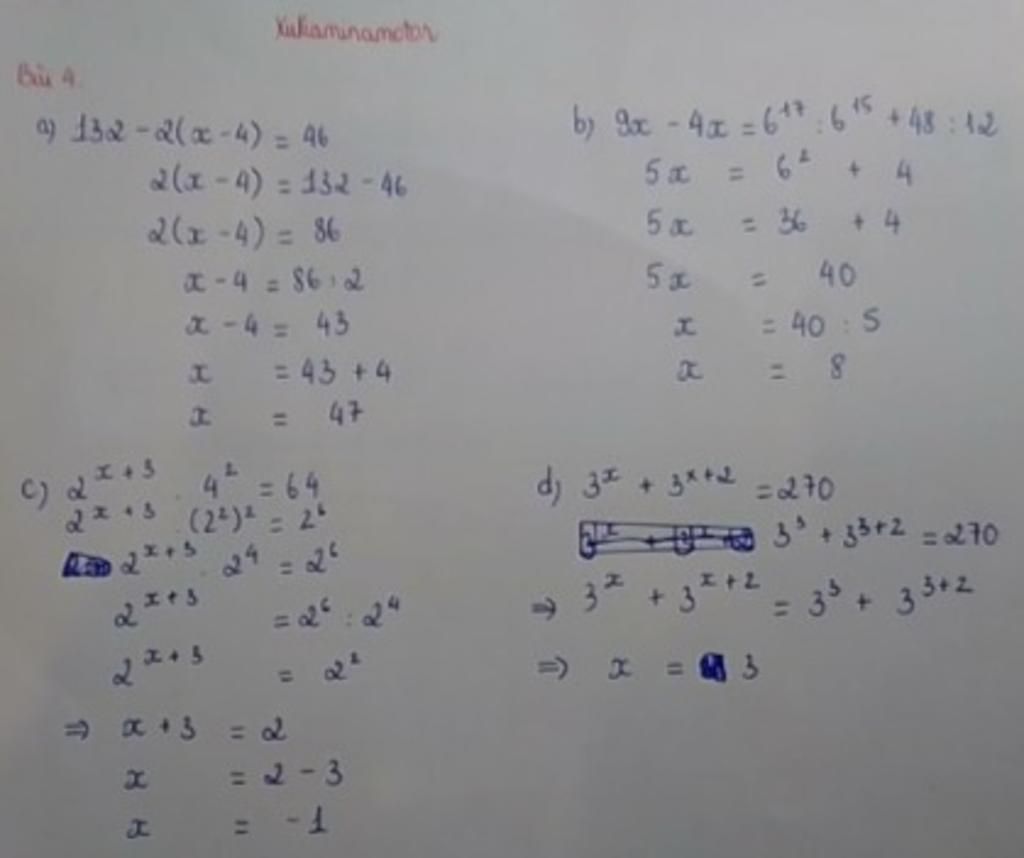 Xukaminamotor
Bài 4
a) 132 - 2(x - 4) = 46
2(x - 4) = 132 - 46
2(x - 4) = 86
x - 4 = 86 : 2
x - 4 = 43
x = 43 + 4
x = 47
b) 9x - 4x = 6¹⁷ : 6¹⁵ + 48 : 12
5x = 6² + 4
5x = 36 + 4
5x = 40
x = 40 : 5
x = 8
c) 2ˣ⁺³ . 4² = 64
2ˣ⁺³ . (2²)² = 2⁶
2ˣ⁺³ . 2⁴ = 2⁶
2ˣ⁺³ = 2⁶ : 2⁴
2ˣ⁺³ = 2²
⇒ x + 3 = 2
x = 2 - 3
x = -1
d) 3ˣ + 3ˣ⁺² = 270
3³ + 3³⁺² = 270
⇒ 3ˣ + 3ˣ⁺² = 3³ + 3³⁺²
⇒ x = 3